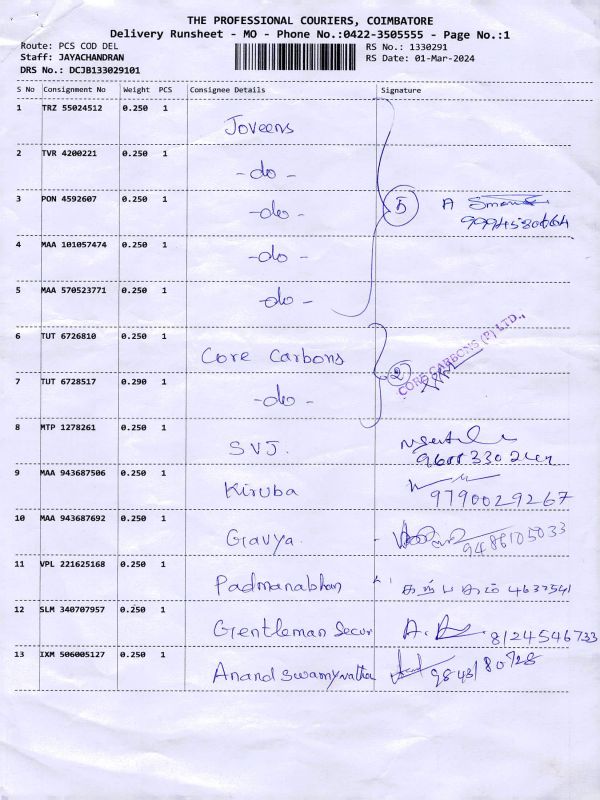 THE PROFESSIONAL COURIERS, COIMBATORE
Delivery Runsheet - MO - Phone No.:0422-3505555 - Page No.:1
Route: PCS COD DEL
Staff: JAYACHANDRAN
DRS No.: DCJB133029101
RS No.: 1330291
RS Date: 01-Mar-2024
S No Consignment No Weight PCS Consignee Details Signature
1 TRZ 55024512 0.250 1 Joveens
2 TVR 4200221 0.250 1 -do-
3 PON 4592607 0.250 1 -do- 5 A
4 MAA 101057474 0.250 1 -do-
5 MAA 570523771 0.250 1 -do-
6 TUT 6726810 0.250 1 Core Carbons
CORE CARBONS (P) LTD.,
7 TUT 6728517 0.290 1 -do- 2
8 MTP 1278261 0.250 1 SVJ.
9 MAA 943687506 0.250 1 Kiruba 9790029267
10 MAA 943687692 0.250 1 Gavya. 9486105033
11 VPL 221625168 0.250 1 Padmanabhan 4637541
12 SLM 340707957 0.250 1 Gentleman Secur 8124546733
13 IXM 506005127 0.250 1 Anand Swamynatha 9843180728